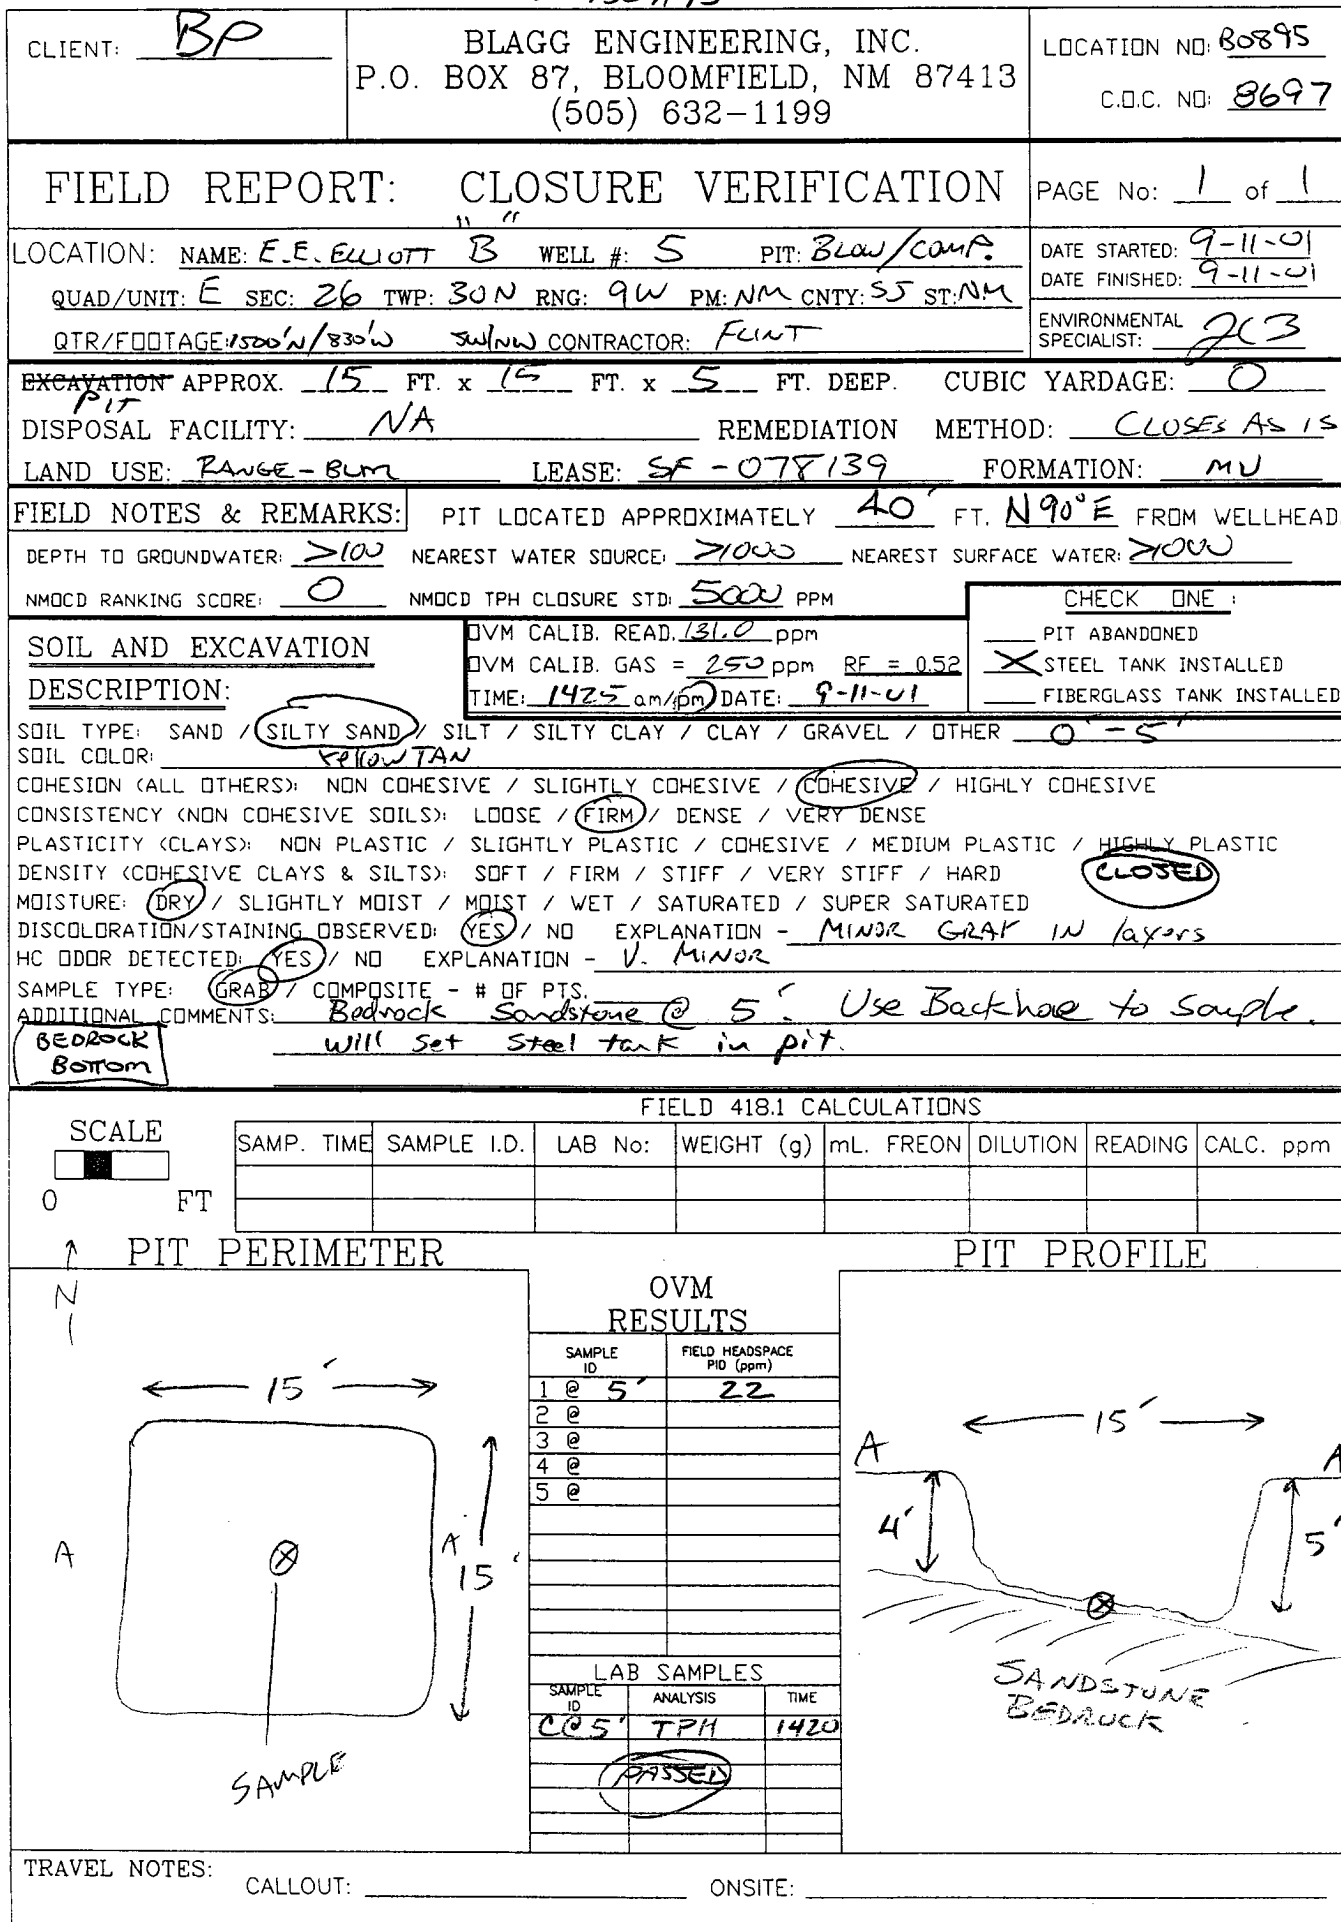 CLIENT: BP
BLAGG ENGINEERING, INC.
P.O. BOX 87, BLOOMFIELD, NM 87413
(505) 632-1199
LOCATION NO: B0895
C.O.C. NO: 8697
FIELD REPORT: CLOSURE VERIFICATION
PAGE No: 1 of 1
LOCATION: NAME: E.E. ELLIOTT "B" WELL #: 5 PIT: BLOW/COMP.
QUAD/UNIT: E SEC: 26 TWP: 30N RNG: 9W PM: NM CNTY: SJ ST: NM
QTR/FOOTAGE: 1500'N/830'W SW/NW CONTRACTOR: FLINT
DATE STARTED: 9-11-01
DATE FINISHED: 9-11-01
ENVIRONMENTAL
SPECIALIST:
EXCAVATION APPROX. 15 FT. x 15 FT. x 5 FT. DEEP. CUBIC YARDAGE: 0
PIT
DISPOSAL FACILITY: NA REMEDIATION METHOD: CLOSES AS IS
LAND USE: RANGE - BLM LEASE: SF - 078139 FORMATION: MV
FIELD NOTES & REMARKS: PIT LOCATED APPROXIMATELY 40' FT. N90°E FROM WELLHEAD
DEPTH TO GROUNDWATER: >100 NEAREST WATER SOURCE: >1000 NEAREST SURFACE WATER: >1000
NMOCD RANKING SCORE: 0 NMOCD TPH CLOSURE STD: 5000 PPM
CHECK ONE :
PIT ABANDONED
X STEEL TANK INSTALLED
FIBERGLASS TANK INSTALLED
SOIL AND EXCAVATION
DESCRIPTION:
OVM CALIB. READ. 131.0 ppm
OVM CALIB. GAS = 250 ppm RF = 0.52
TIME: 1425 am/pm DATE: 9-11-01
SOIL TYPE: SAND / SILTY SAND / SILT / SILTY CLAY / CLAY / GRAVEL / OTHER 0'-5'
SOIL COLOR: Yellow TAN
COHESION (ALL OTHERS): NON COHESIVE / SLIGHTLY COHESIVE / COHESIVE / HIGHLY COHESIVE
CONSISTENCY (NON COHESIVE SOILS): LOOSE / FIRM / DENSE / VERY DENSE
PLASTICITY (CLAYS): NON PLASTIC / SLIGHTLY PLASTIC / COHESIVE / MEDIUM PLASTIC / HIGHLY PLASTIC
DENSITY (COHESIVE CLAYS & SILTS): SOFT / FIRM / STIFF / VERY STIFF / HARD CLOSED
MOISTURE: DRY / SLIGHTLY MOIST / MOIST / WET / SATURATED / SUPER SATURATED
DISCOLORATION/STAINING OBSERVED: YES / NO EXPLANATION - MINOR GRAY IN layers
HC ODOR DETECTED: YES / NO EXPLANATION - V. MINOR
SAMPLE TYPE: GRAB / COMPOSITE - # OF PTS.
ADDITIONAL COMMENTS: Bedrock Sandstone @ 5'. Use Backhoe to sample.
BEDROCK
BOTTOM
will set Steel tank in pit.
FIELD 418.1 CALCULATIONS
SCALE
0 FT
SAMP. TIME SAMPLE I.D. LAB No: WEIGHT (g) mL. FREON DILUTION READING CALC. ppm
PIT PERIMETER
N
15'
A
A'
15'
SAMPLE
OVM
RESULTS
SAMPLE ID FIELD HEADSPACE PID (ppm)
1 @ 5' 22
2 @
3 @
4 @
5 @
LAB SAMPLES
SAMPLE ID ANALYSIS TIME
C@5' TPH 1420
PASSED
PIT PROFILE
15'
A
A
4'
5'
SANDSTONE
BEDROCK
TRAVEL NOTES:
CALLOUT: ONSITE: